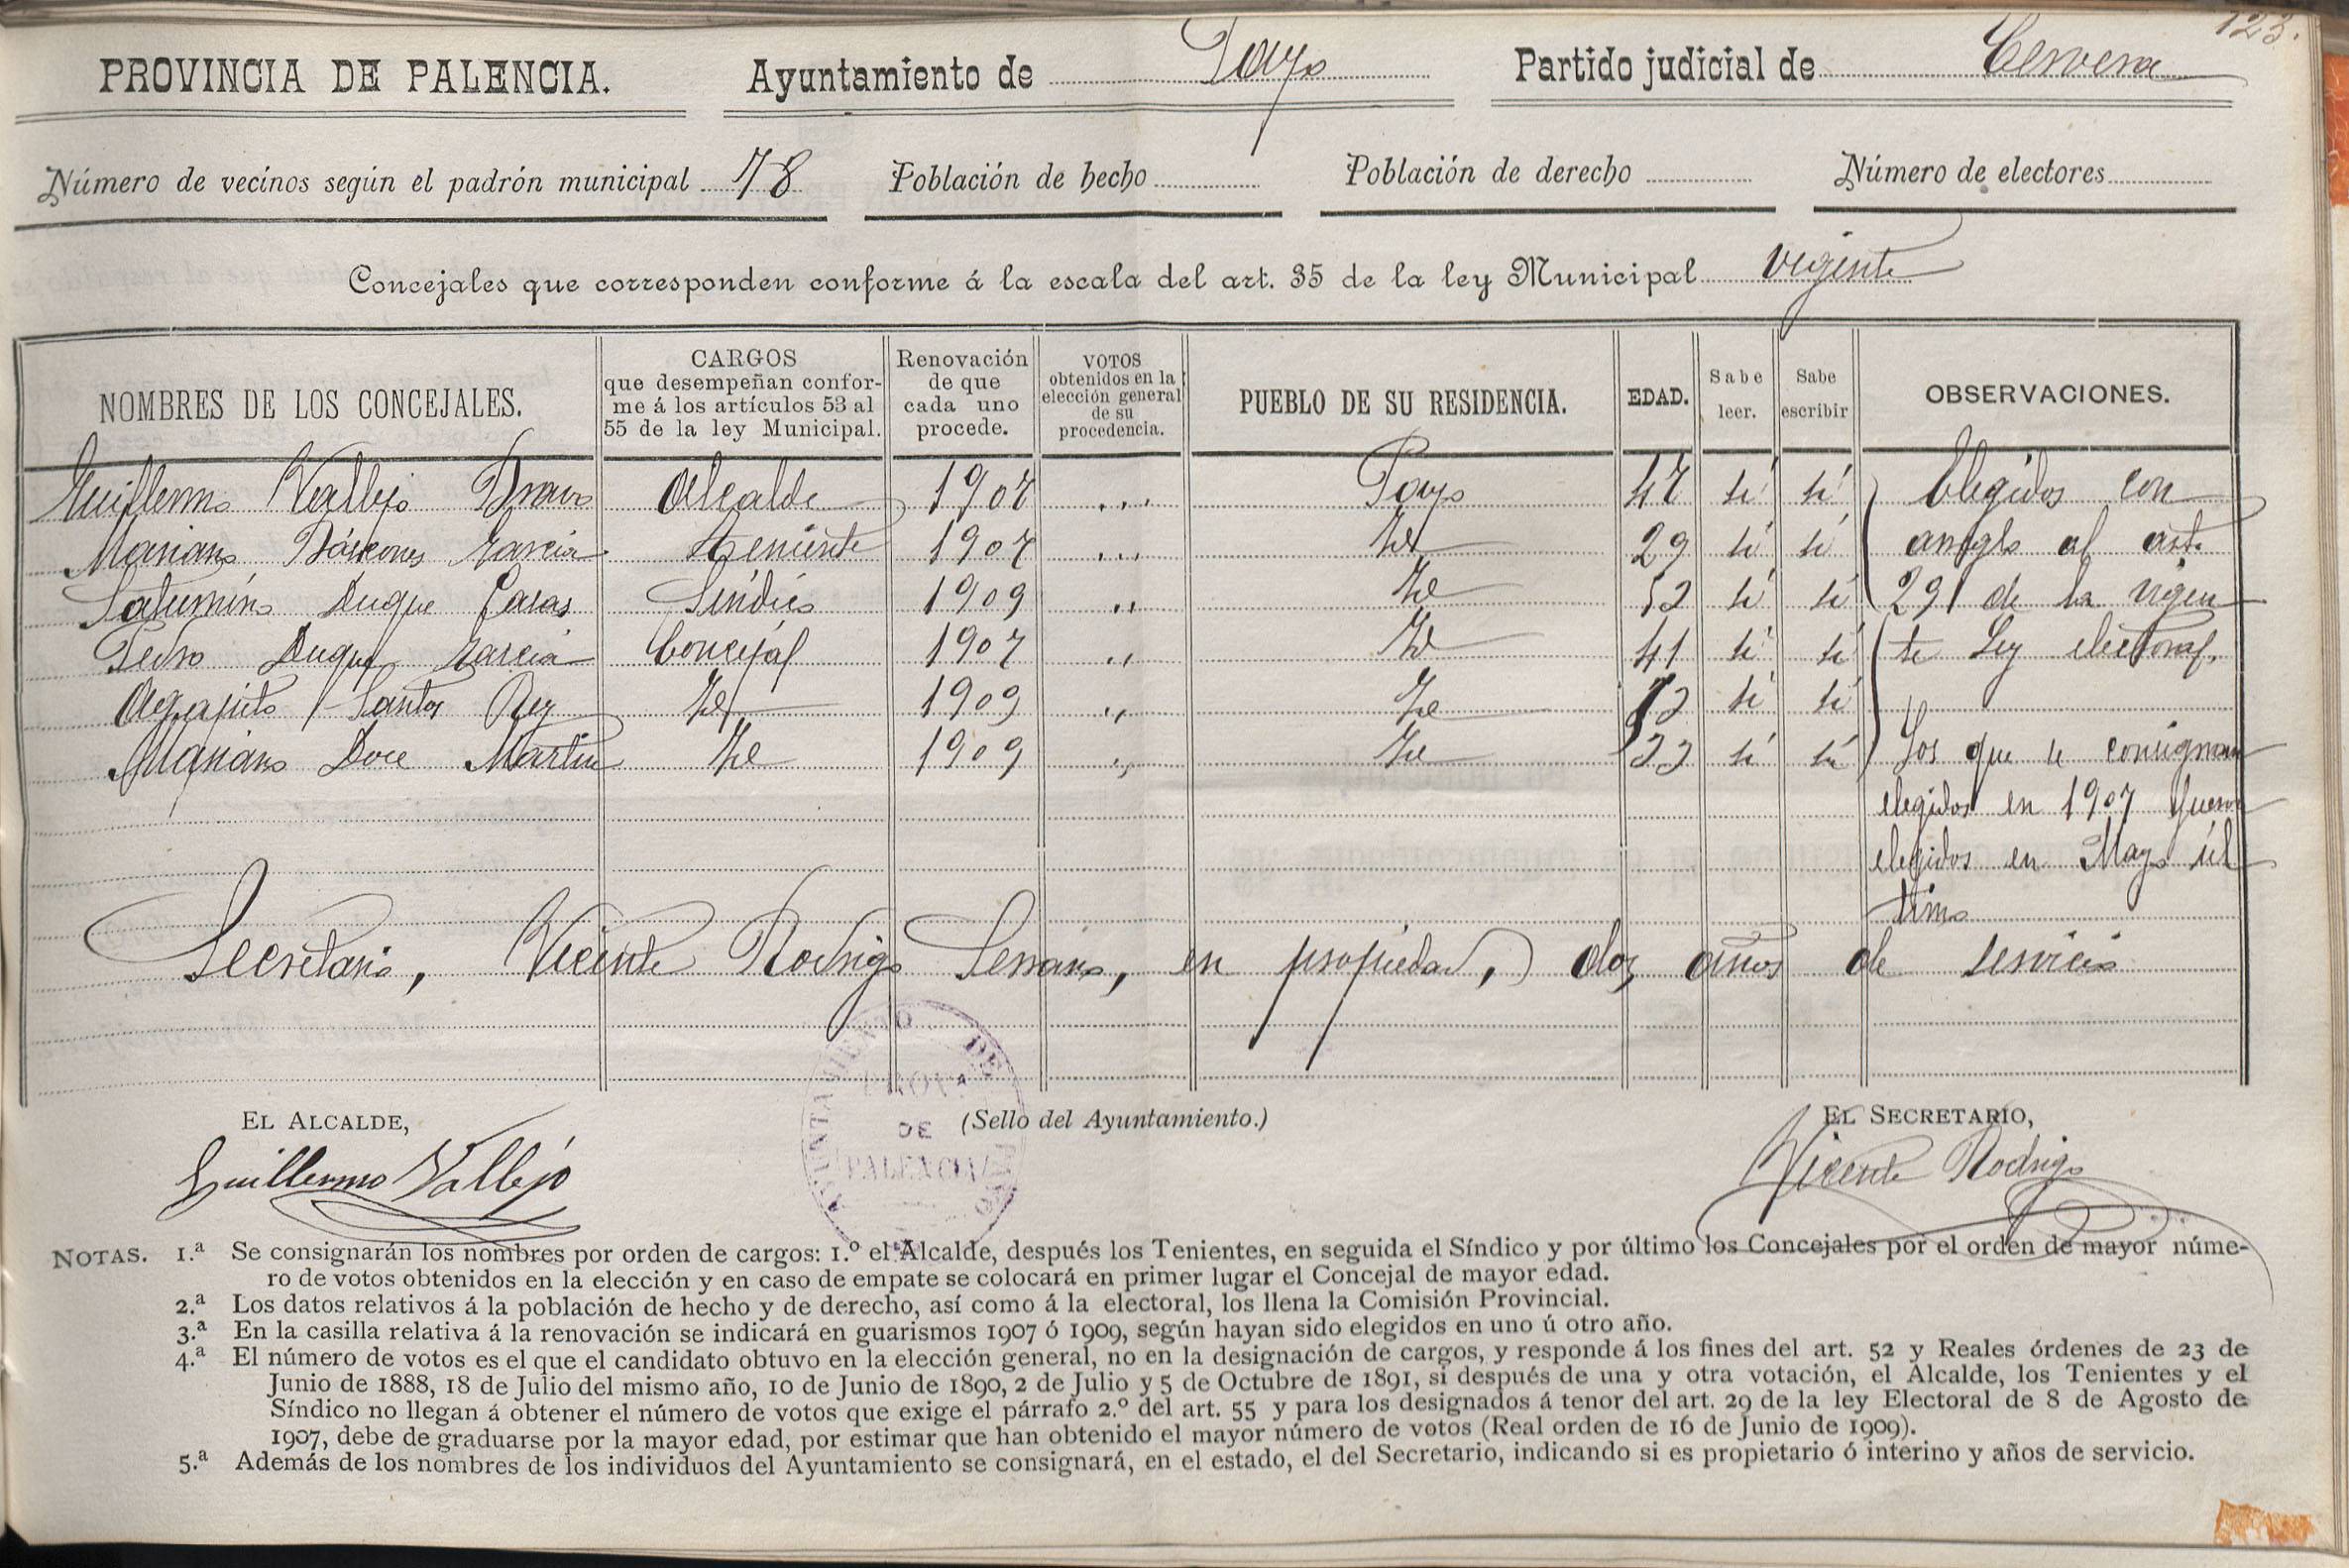 123.
PROVINCIA DE PALENCIA. Ayuntamiento de Payo Partido judicial de Cervera
Número de vecinos según el padrón municipal 78 Población de hecho Población de derecho Número de electores
Concejales que corresponden conforme á la escala del art. 35 de la ley Municipal vigente
NOMBRES DE LOS CONCEJALES. CARGOS que desempeñan confor- me á los artículos 53 al 55 de la ley Municipal. Renovación de que cada uno procede. VOTOS obtenidos en la elección general de su procedencia. PUEBLO DE SU RESIDENCIA. EDAD. Sabe leer. Sabe escribir OBSERVACIONES.
Guillermo Vallejo Bravo Alcalde 1907 ... Payo 47 sí sí Elegidos con
Mariano Báscones García Teniente 1907 ... Id 29 sí sí arreglo al art.
Saturnino Duque Casas Síndico 1909 ,, Id 52 sí sí 29 de la vigen
Pedro Duque García Concejal 1907 ,, Id 41 sí sí te Ley electoral.
Agapito Santos Rey Id 1909 ,, Id sí sí
Mariano Doce Martín Id 1909 ,, Id 33 sí sí Los que se consignan
elegidos en 1907 fueron
elegidos en Mayo úl
timo
Secretario, Vicente Rodrigo Serrano, en propiedad, dos años de servicio
AYUNTAMIENTO DE PAYO
PROV.ª
DE
PALENCIA
EL ALCALDE, (Sello del Ayuntamiento.) EL SECRETARIO,
Guillermo Vallejo Vicente Rodrigo
NOTAS. 1.ª Se consignarán los nombres por orden de cargos: 1.º el Alcalde, después los Tenientes, en seguida el Síndico y por último los Concejales por el orden de mayor núme-
ro de votos obtenidos en la elección y en caso de empate se colocará en primer lugar el Concejal de mayor edad.
2.ª Los datos relativos á la población de hecho y de derecho, así como á la electoral, los llena la Comisión Provincial.
3.ª En la casilla relativa á la renovación se indicará en guarismos 1907 ó 1909, según hayan sido elegidos en uno ú otro año.
4.ª El número de votos es el que el candidato obtuvo en la elección general, no en la designación de cargos, y responde á los fines del art. 52 y Reales órdenes de 23 de
Junio de 1888, 18 de Julio del mismo año, 10 de Junio de 1890, 2 de Julio y 5 de Octubre de 1891, si después de una y otra votación, el Alcalde, los Tenientes y el
Síndico no llegan á obtener el número de votos que exige el párrafo 2.º del art. 55 y para los designados á tenor del art. 29 de la ley Electoral de 8 de Agosto de
1907, debe de graduarse por la mayor edad, por estimar que han obtenido el mayor número de votos (Real orden de 16 de Junio de 1909).
5.ª Además de los nombres de los individuos del Ayuntamiento se consignará, en el estado, el del Secretario, indicando si es propietario ó interino y años de servicio.